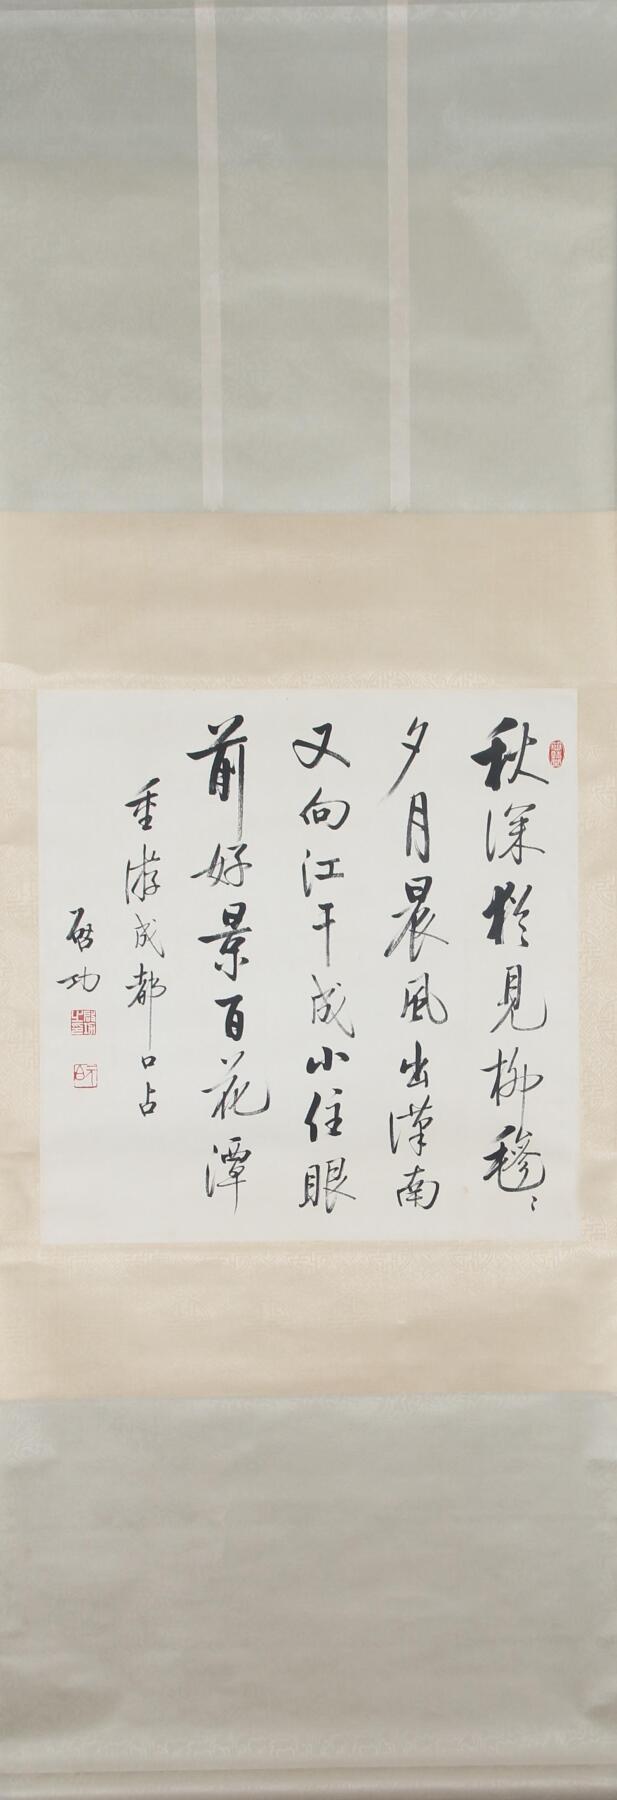 秋深猶見柳毿〻
夕月晨風出漢南
又向江干成小住眼
前好景百花潭
重游成都口占
啓功